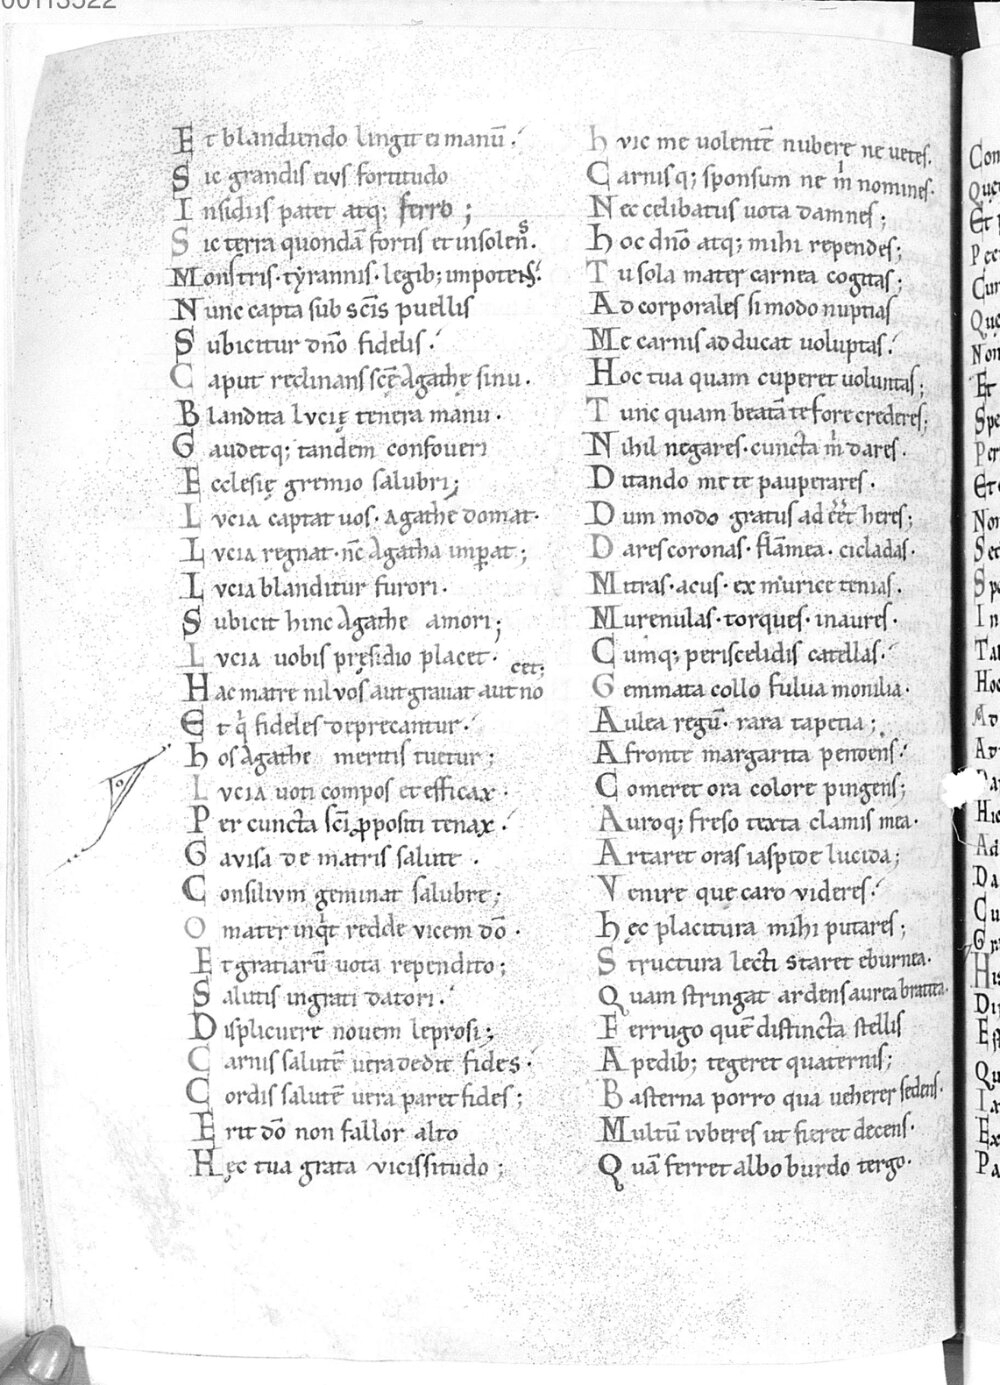 Et blandiendo lingit ei manū.
Sic grandis eius fortitudo
Insidiis patet atq; ferro;
Sic terra quondā fortis et insolens.
Monstris. tyrannis. legib; impotens.
Nunc capta sub sc̄is puellis
Subicitur dn̄o fidelis.
Caput reclinans sc̄ę Agathę sinu.
Blandita Lvcię tenera manu.
Gaudetq; tandem confoueri
Ecclesię gremio salubri;
Lvcia captat uos. Agathe domat.
Lvcia regnat. nc̄ Agatha imꝑat;
Lvcia blanditur furori.
Subicit hinc Agathe amori;
Lvcia uobis pręsidio placet.
cet;
Hac matre nil uos aut grauat aut no
Et q̇ fideles deprecantur.
Hos Agathe meritis tuetur;
Lvcia uoti compos et efficax.
Per cuncta sc̄i ꝓpositi tenax.
Gavisa de matris salute.
Consilivm geminat salubre;
O mater inq̇t redde vicem dō.
Et gratiarū uota rependito;
Salutis ingrati datori.
Displicuere novem leprosi;
Carnis salutē uera dedit fides.
Cordis salutē uera paret fides;
Erit dō non fallor alto
Hęc tua grata vicissitudo;
Hvic me uolentē nubere ne uetes.
Carnisq; sponsum ne m̄ nomines.
Nec celibatus uota damnes;
Hoc dn̄o atq; mihi rependes;
Tu sola mater carnea cogitas;
Ad corporales si modo nuptias
Me carnis adducat uoluptas.
Hoc tua quam cuperet uoluntas;
Tunc quam beatā te fore crederes;
Nihil negares. cuncta m̄ dares.
Ditando me te pauperares.
Dum modo gratus adēēt heres;
Dares coronas. flāmea. cicladas.
Mitras. acus. ex murice tenias.
Murenulas. torques. inaures.
Cumq; periscelidis catellas.
Gemmata collo fulua monilia.
Aulea regū. rara tapetia;
A fronte margarita pendens.
Comeret ora colore pingens;
Auroq; freso texta clamis mea.
Artaret oras iaspide lucida;
Venire que caro videres.
Hęc placitura mihi putares;
Structura lecti staret eburnea.
Quam stringat ardens aurea bratea.
Ferrugo quē distincta stellis
A pedib; tegeret quaternis;
Basterna porro qua ueherer sedens.
Multū ivberes ut fieret decens.
Quā ferret albo burdo tergo.